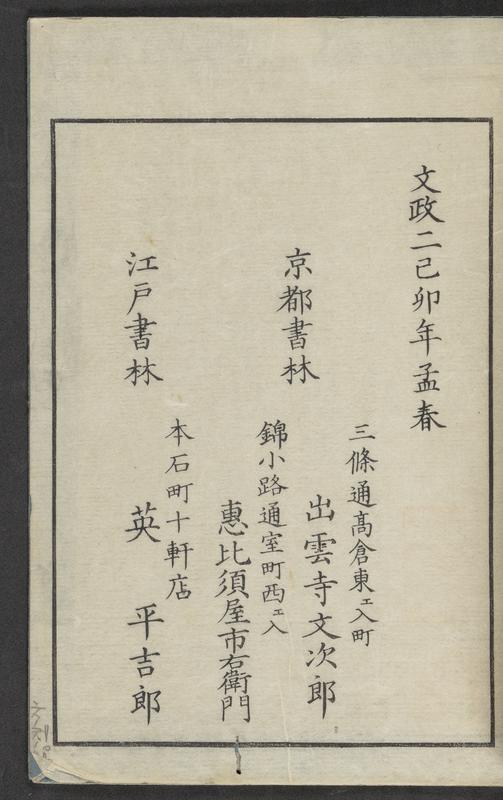 文政二己卯年孟春
京都書林
三條通髙倉東エ入町
出雲寺文次郎
錦小路通室町西エ入
惠比須屋市右衛門
江戸書林
本石町十軒店
英 平吉郎